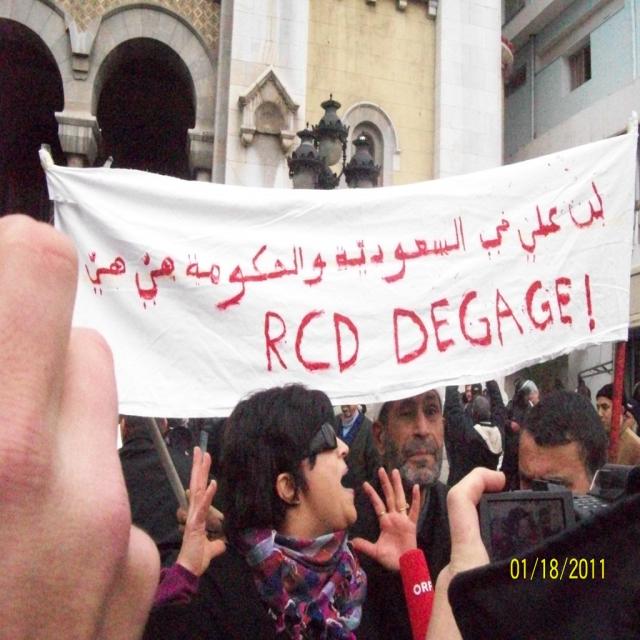 بن علي في السعودية والحكومة هيّ هيّ
RCD DEGAGE!
ORF
01/18/2011